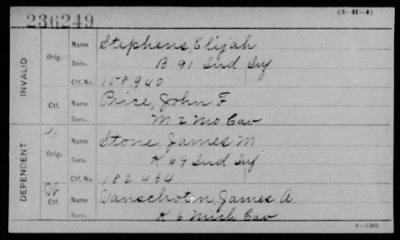 236249
(3-H-4)
INVALID
Orig.
Name Stephens, Elijah
Serv. B 91 Ind Inf
Ctf. No. 158,940
Ctf.
Name Price, John F
Serv. M 2 Mo Cav
DEPENDENT
Orig.
Name Stone, James M
Serv. K 69 Ind Inf
Ctf. No. 182464
Ctf.
Name Vanschoten, James A
Serv. K 6 Mich Cav